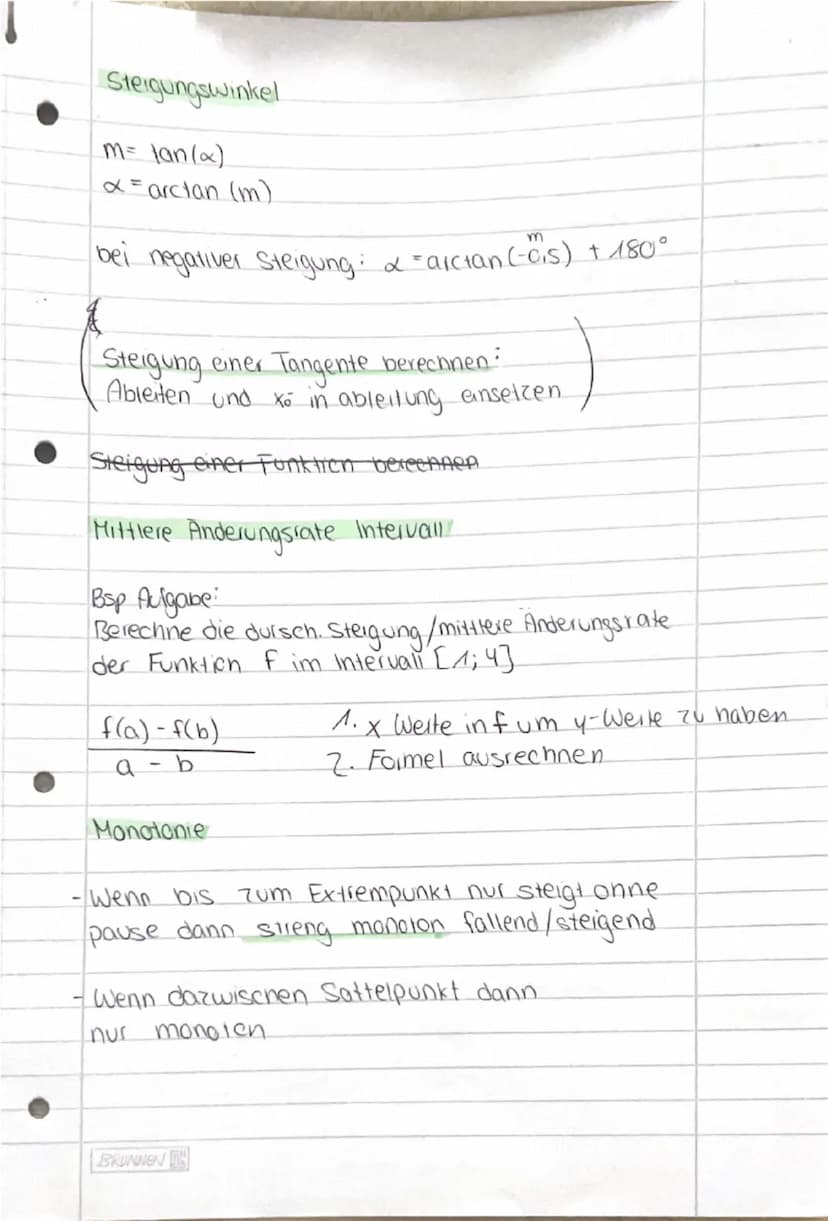 Steigungswinkel
m= tan(α)
α = arctan (m)
m
bei negativer Steigung: α = arctan(-0,5) + 180°
Steigung einer Tangente berechnen:
Ableiten und x₀ in ableitung einsetzen
Steigung einer Funktion berechnen
Mittlere Änderungsrate Intervall
Bsp Aufgabe:
Berechne die dursch. Steigung/mittlere Änderungsrate
der Funktion f im Intervall [1;4]
f(a) - f(b)
a - b
1. x Werte in f um y-Werte zu haben
2. Formel ausrechnen
Monotonie
- Wenn bis zum Extrempunkt nur steigt ohne
pause dann streng monoton fallend/steigend
- Wenn dazwischen Sattelpunkt dann
nur monoton
BRUNNEN